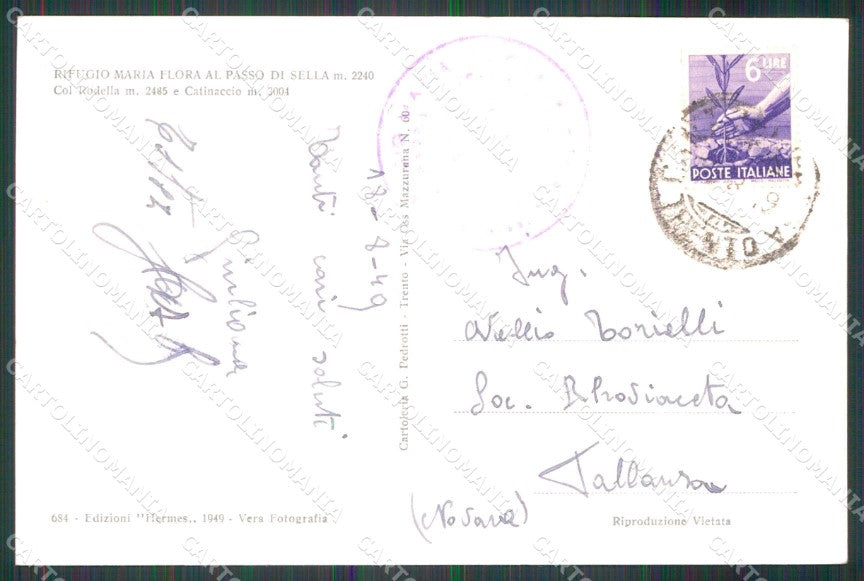 RIFUGIO MARIA FLORA AL PASSO DI SELLA m. 2240
Col Rodella m. 2485 e Catinaccio m. 3004
18-8-49
Tanti cari saluti
Giuliana
Cartoleria G. Pedrotti - Trento - Via Ces Mazzurana N. 60
6 LIRE
POSTE ITALIANE
TRENTO
Ing.
Nellio Torielli
Soc. Rhodiaceta
Pallanza
(Novara)
684 - Edizioni "Hermes„ 1949 - Vera Fotografia
Riproduzione Vietata
CARTOLINOMANIA